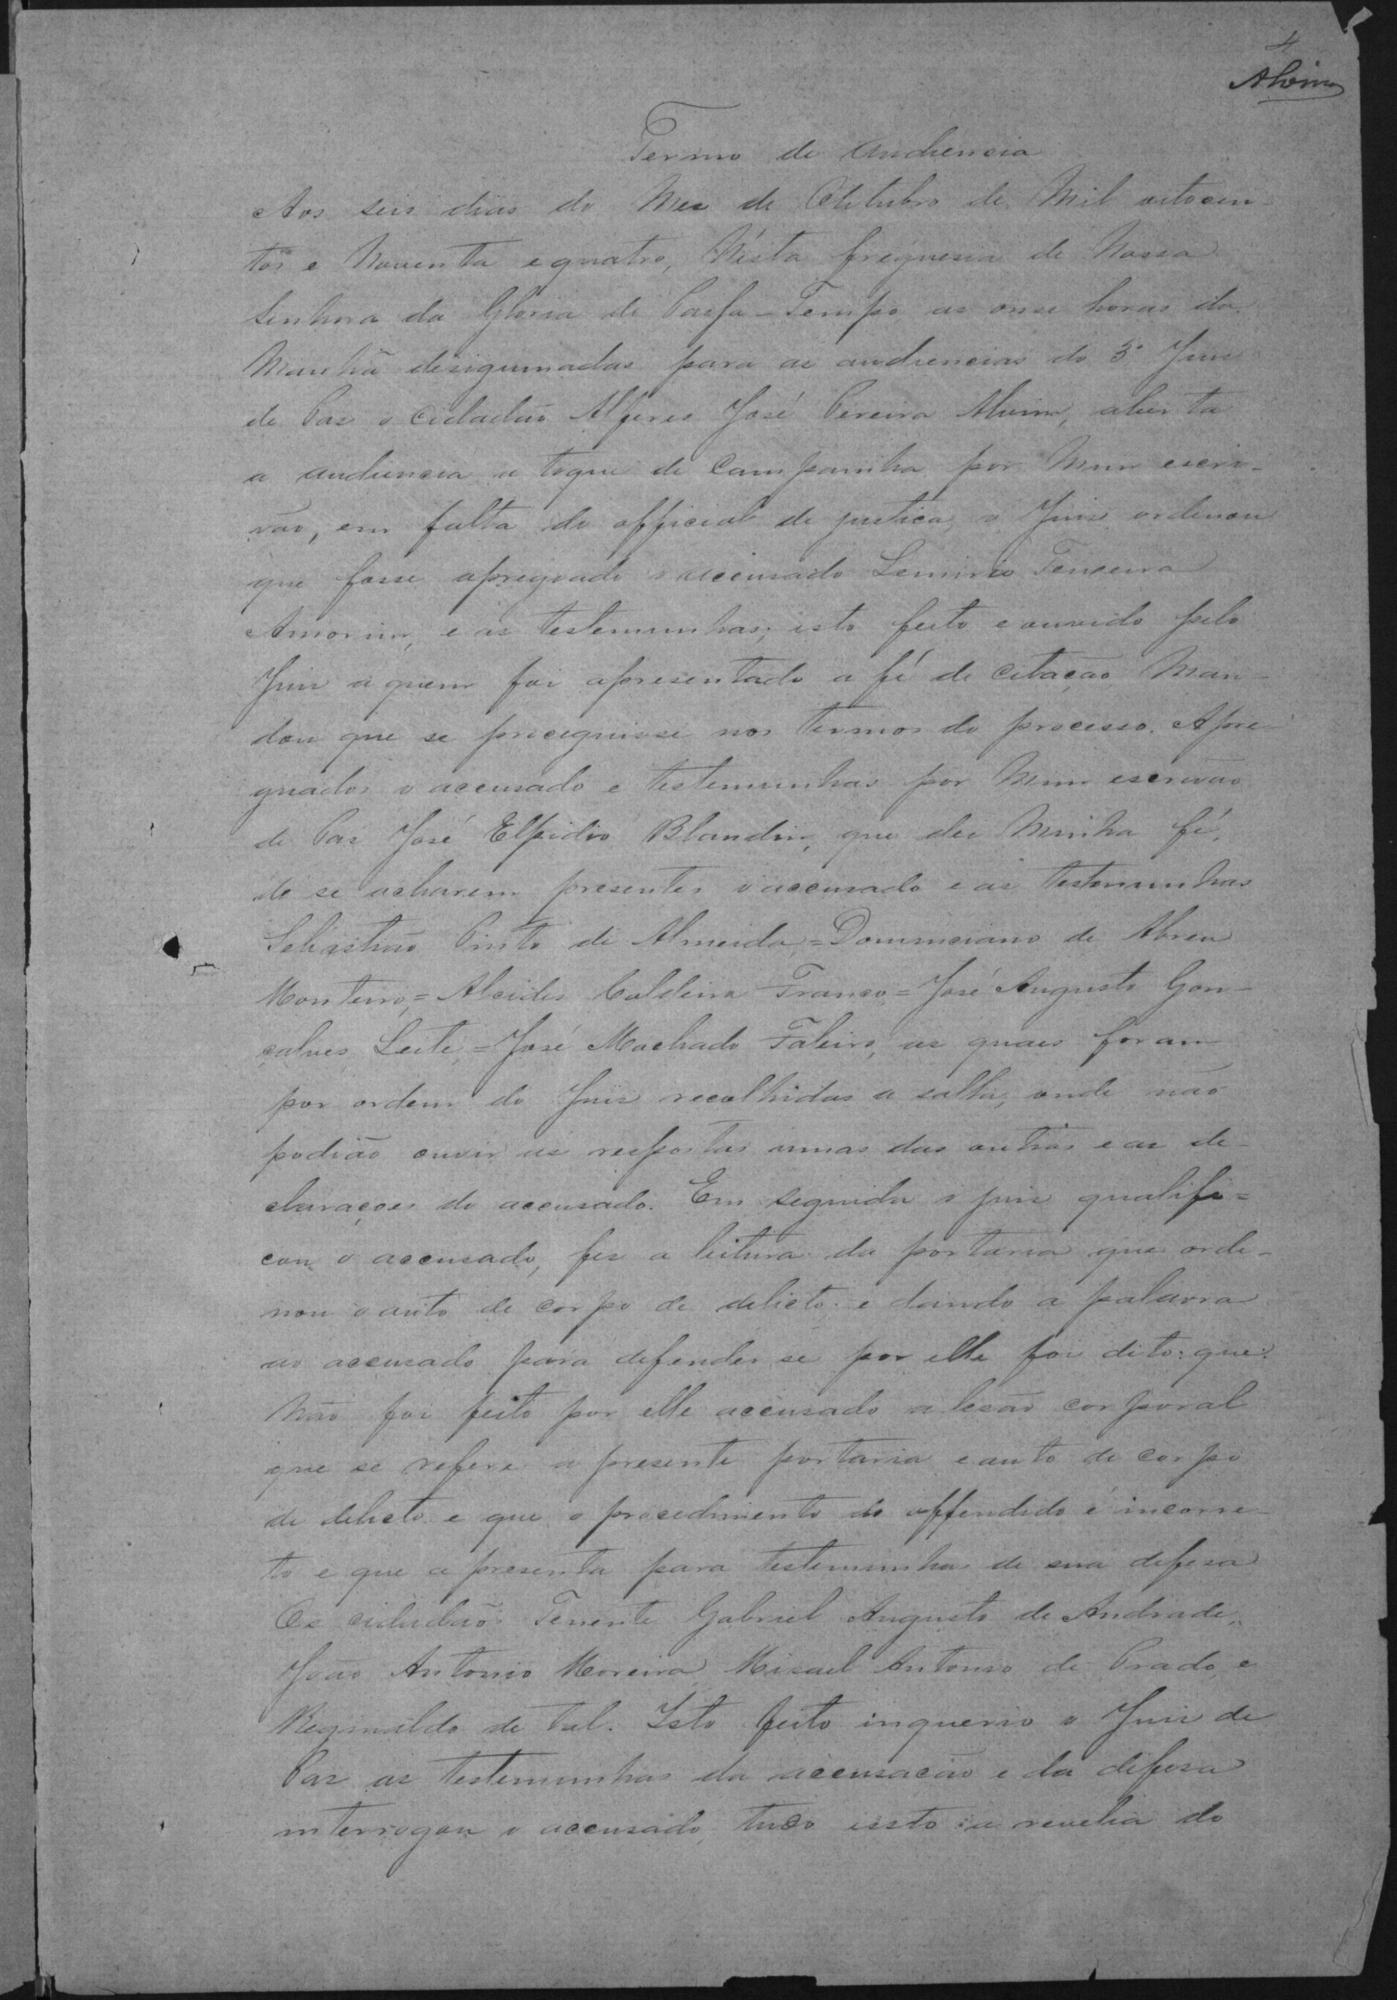 4
Alvim
Termo de Audiencia
Aos seis dias do Mez de Outubro de Mil oitocen-
tos e Noventa e quatro, Nésta freguesia de Nossa
Senhora da Gloria de Passa-Tempo as onse horas da
Manhã desiguinadas para as audiencias do 3º Juiz
de Paz o Cidadão Alferes José Pereira Alvim, aberta
a audiencia a toque de Campainha por Mim escri-
vão, em falta do official de justica, o Juiz ordenou
que fosse apregoado o accusado Teixeira
Amorim, e as testemunhas; isto feito e ouvido pelo
Juiz a quem foi apresentado a fé de citação, Man-
dou que se proceguisse nos termos do processo. Apre-
guados o accusado e testemunhas por Mim escrivão
de Paz José Elpidio Blandin, que dei Minha fé,
de se acharem presentes o accusado e as testemunhas
Sebastião Pinto de Almeida = Dominciano de Abreu
Monteiro, = Alcides Caldeira Franco = José Augusto Gon-
çalves Leite = José Machado Faleiro, as quaes foram
por ordem do Juiz recolhidas a salla, onde não
podião ouvir as respostas umas das outras e as de-
claraçoes do accusado. Em seguida o juiz qualifi=
cou o accusado, fez a leitura da portaria que orde-
nou o auto de corpo de delicto e dando a palavra
ao accusado para defender se por elle foi dito: que
Não foi feito por elle accusado a lesão corporal
que se refere a presente portaria e auto de corpo
de delicto e que o procedimento do offendido é incorre-
to e que apresenta para testemunhas de sua defesa
Os cidadãos Tenente Gabriel Augusto de Andrade,
João Antonio Moreira, Misael Antonio de Prado, e
Reginaldo de tal. Isto feito inquerio o Juiz de
Paz as testemunhas da accusacão e da defesa
interrogou o accusado, tudo issto a revelia do